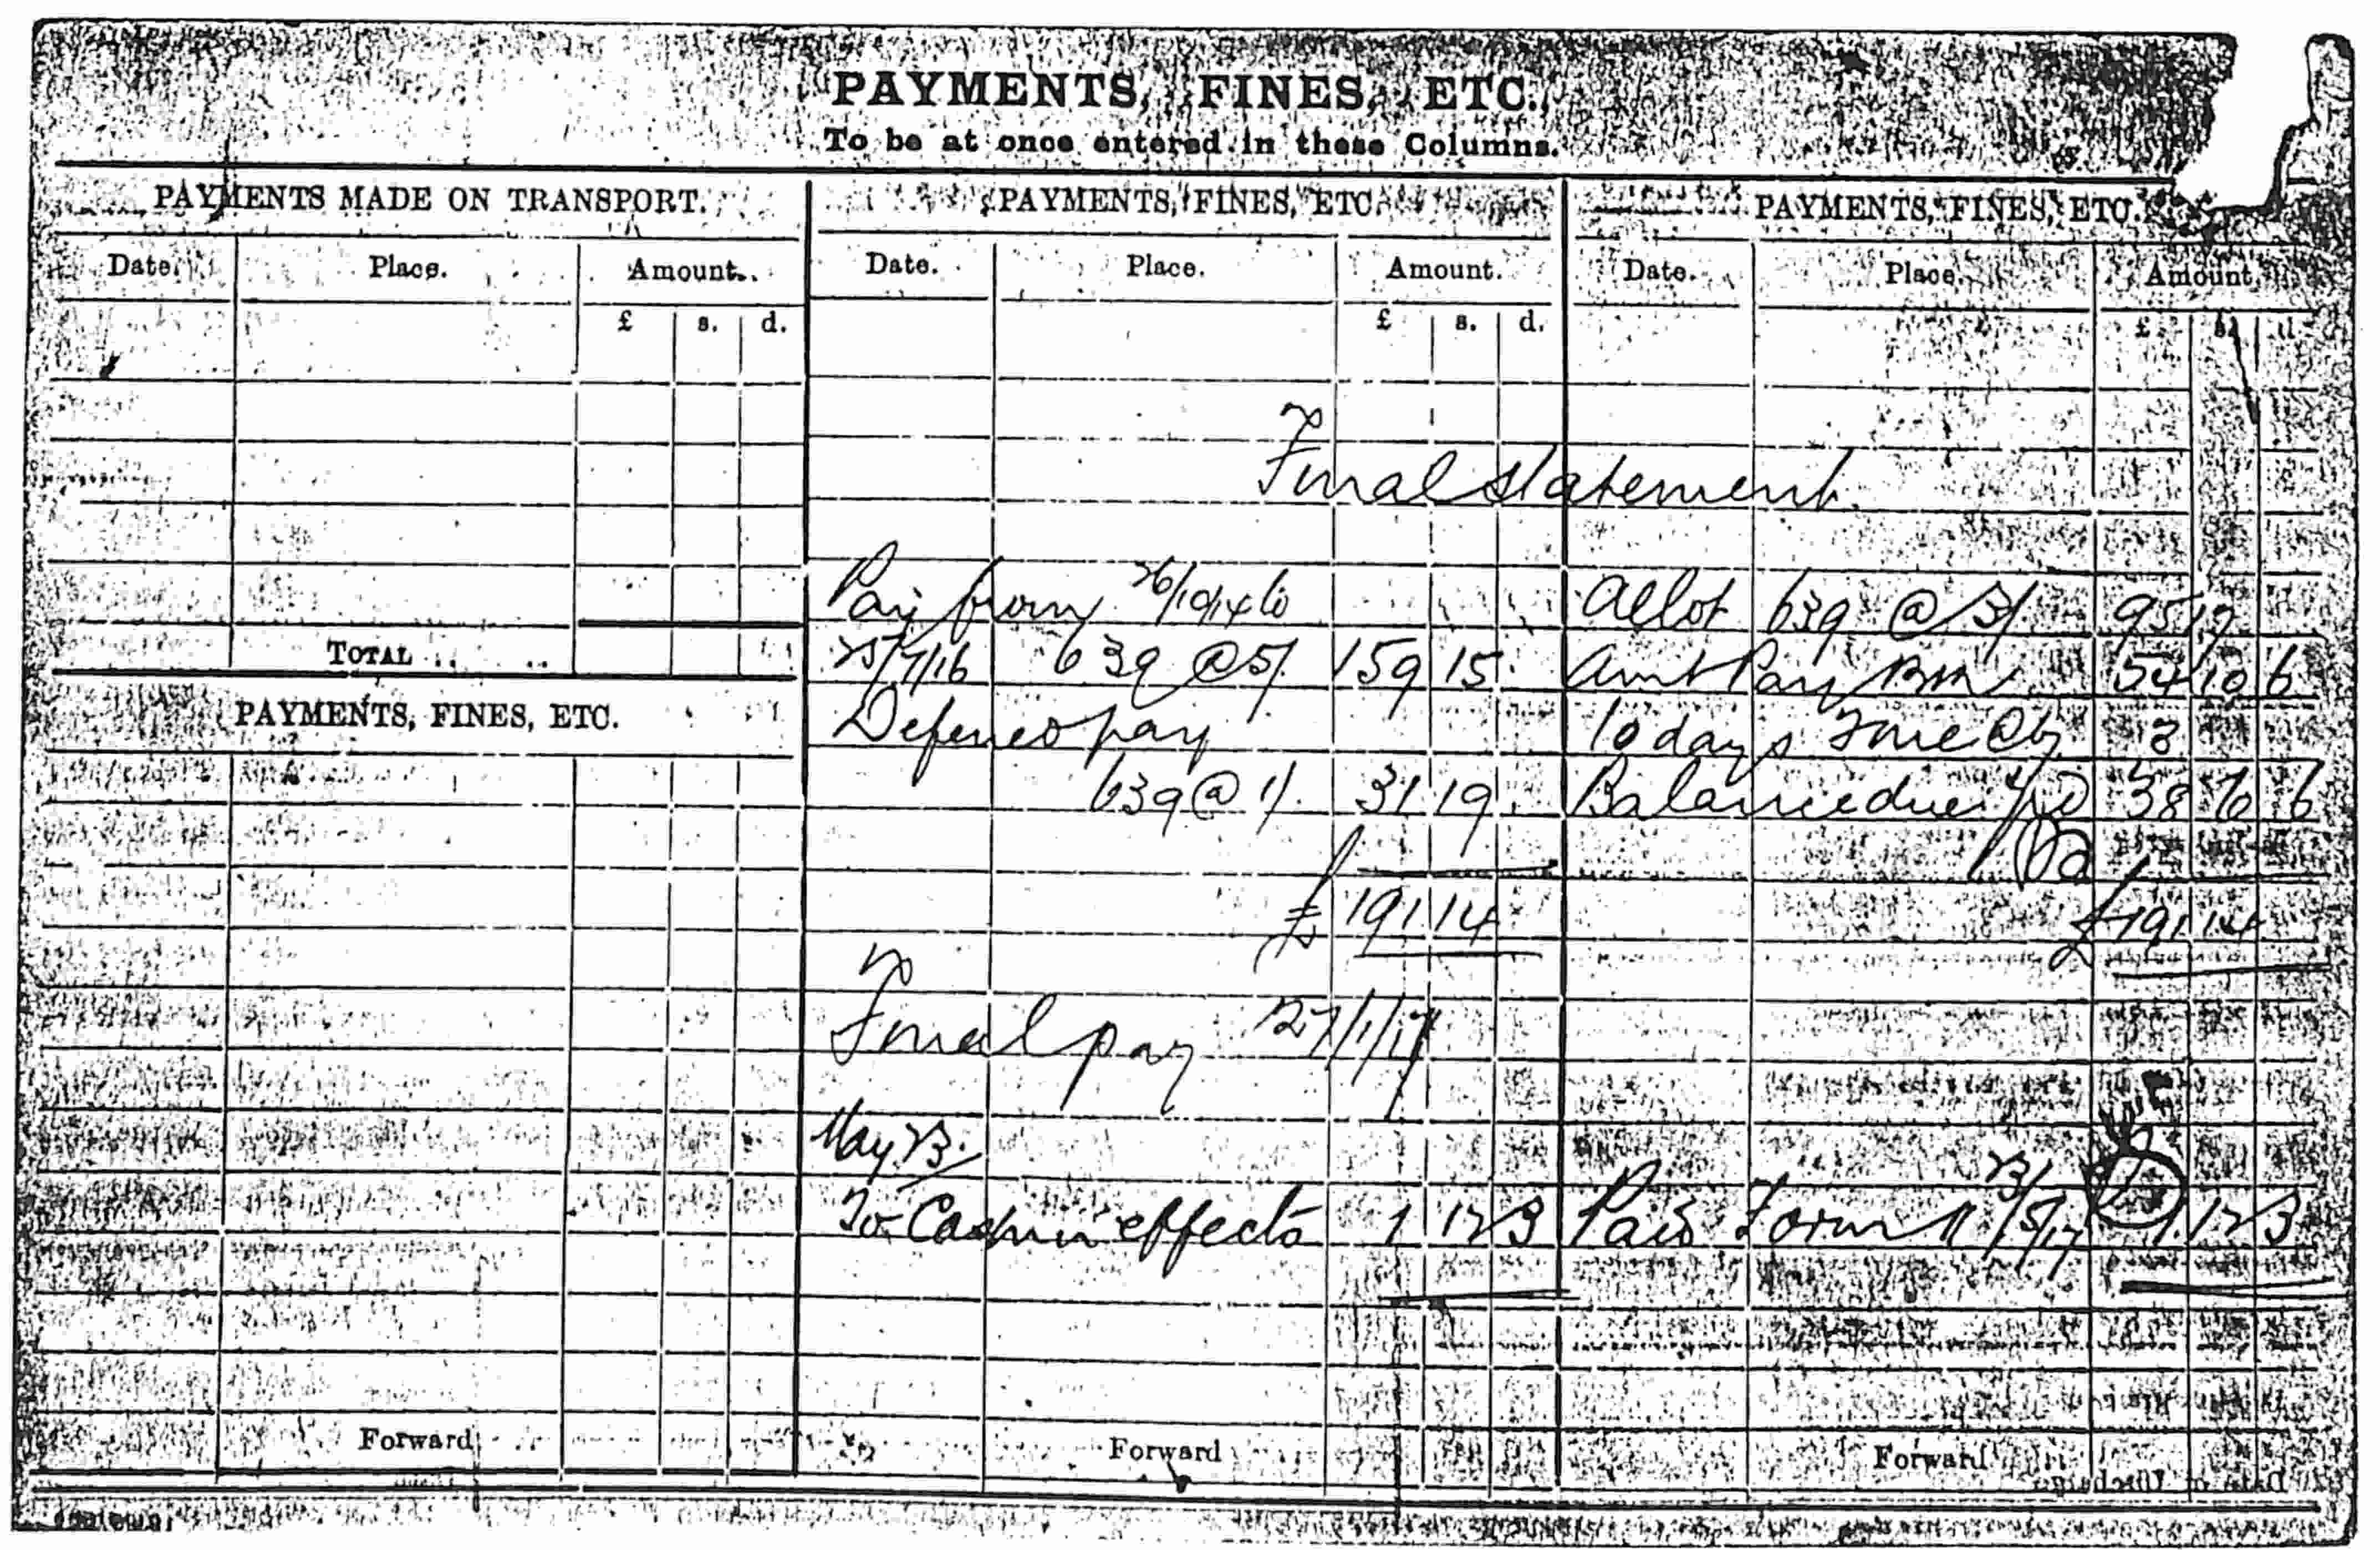 PAYMENTS, FINES, ETC.,
To be at once entered in these Columns.
PAYMENTS MADE ON TRANSPORT.
Date. Place. Amount.
£ s. d.
TOTAL .. ..
PAYMENTS, FINES, ETC.
Forward
PAYMENTS, FINES, ETC.
Date. Place. Amount.
£ s. d.
Final statement
Pay from 26/10/14 to
25/7/16 639 @ 5/. 159 15
Deferred pay
639 @ 1/. 31 19
£ 191 14
Final pay 27/1/17
May 23.
To Cash in effects 1 12 3
Forward
PAYMENTS, FINES, ETC.
Date. Place. Amount.
£ s. d.
Allot 639 @ 3/. 95 17
Amt Pay Bk 54 10 6
10 days @ 6/ 3
Balance due 38 6 6
£ 191 14
Paid Form 11 23/5/17 1 12 3
Forward
Date of Discharge